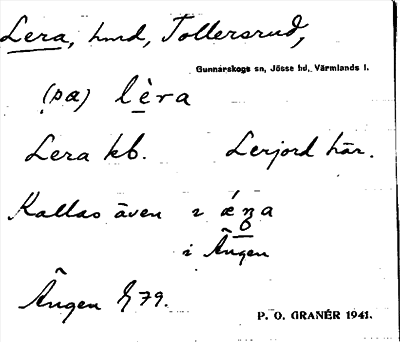 Lera, hmd, Tollersrud,
Gunnarskogs sn, Jösse hd, Värmlands l.
(pa) lèra
Lera kb. Lerjord här.
Kallas även
i Ängen
Ängen § 79.
P. O. GRANÉR 1941.